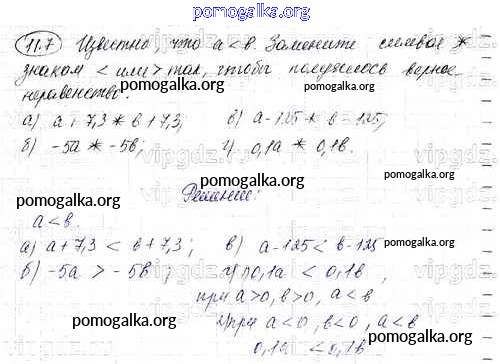 pomogalka.org
11.7 Известно, что a<в. Замените символ *
знаком < или > так, чтобы получилось верное
неравенство.
pomogalka.org pomogalka.org
а) a+7,3 * в+7,3; в) a-125 * в-125;
б) -5a * -5в; г) 0,1a * 0,1в.
pomogalka.org pomogalka.org
Решение:
pomogalka.org
a<в.
а) a+7,3 < в+7,3; в) a-125 < в-125
pomogalka.org
б) -5a > -5в; г) 0,1a < 0,1в,
pomogalka.org
при a>0, в>0, a<в
pomogalka.org
при a<0, в<0, a<в
pomogalka.org
0,1a < 0,1в